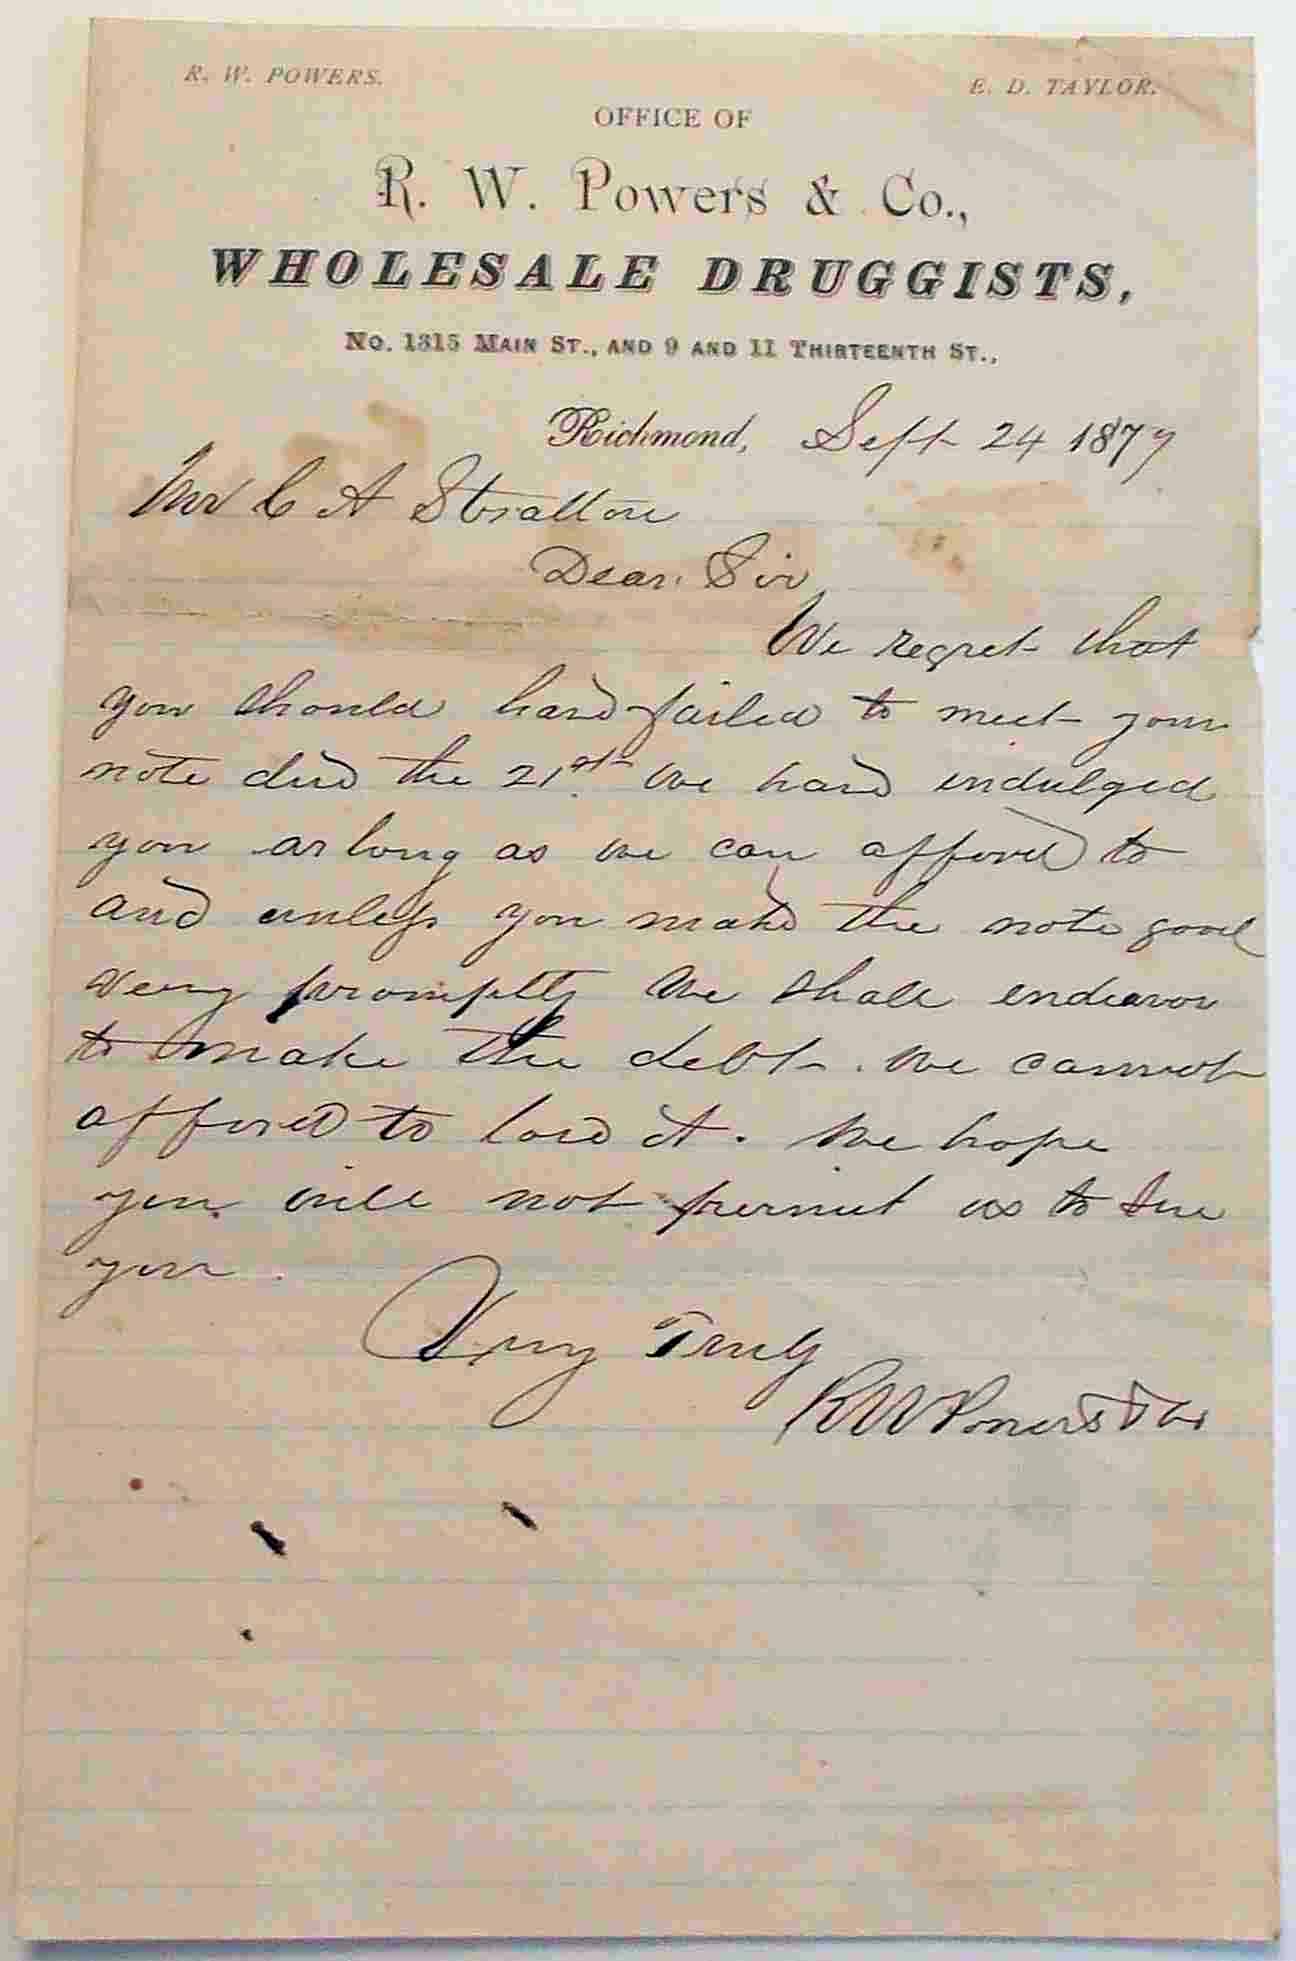 R. W. POWERS.
E. D. TAYLOR.
OFFICE OF
R. W. Powers & Co.,
WHOLESALE DRUGGISTS,
No. 1315 Main St., and 9 and 11 Thirteenth St.,
Richmond, Sept 24 1877
Mr C A Stratton
Dear Sir
We regret that
you should have failed to meet your
note due the 21st. We have indulged
you as long as we can afford to
and unless you make the note good
very promptly we shall endeavor
to make the debt. We cannot
afford to lose it. We hope
you will not permit us to sue
you.
Very Truly
R W Powers & Co